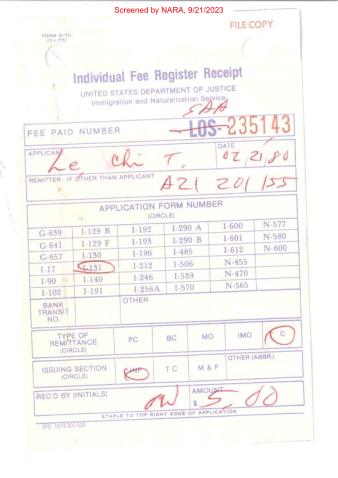 Screened by NARA, 9/21/2023
FILE COPY
FORM G-711
Individual Fee Register Receipt
UNITED STATES DEPARTMENT OF JUSTICE
Immigration and Naturalization Service
FEE PAID NUMBER LOS-235143
APPLICANT DATE
Le, Chi T. 02,21,80
REMITTER - IF OTHER THAN APPLICANT
A21 201 155
APPLICATION FORM NUMBER
(CIRCLE)
G-639 I-129 B I-192 I-290 A I-600 N-577
G-641 I-129 F I-193 I-290 B I-601 N-580
G-657 I-130 I-196 I-485 I-612 N-600
I-17 I-131 I-212 I-506 N-455
I-90 I-140 I-246 I-539 N-470
I-102 I-191 I-256A I-570 N-565
BANK TRANSIT NO. OTHER
TYPE OF REMITTANCE (CIRCLE) PC BC MO IMO C
ISSUING SECTION (CIRCLE) INF T C M & F OTHER (ABBR.)
REC'D BY (INITIALS) AMOUNT
$ 5.00
STAPLE TO TOP RIGHT EDGE OF APPLICATION